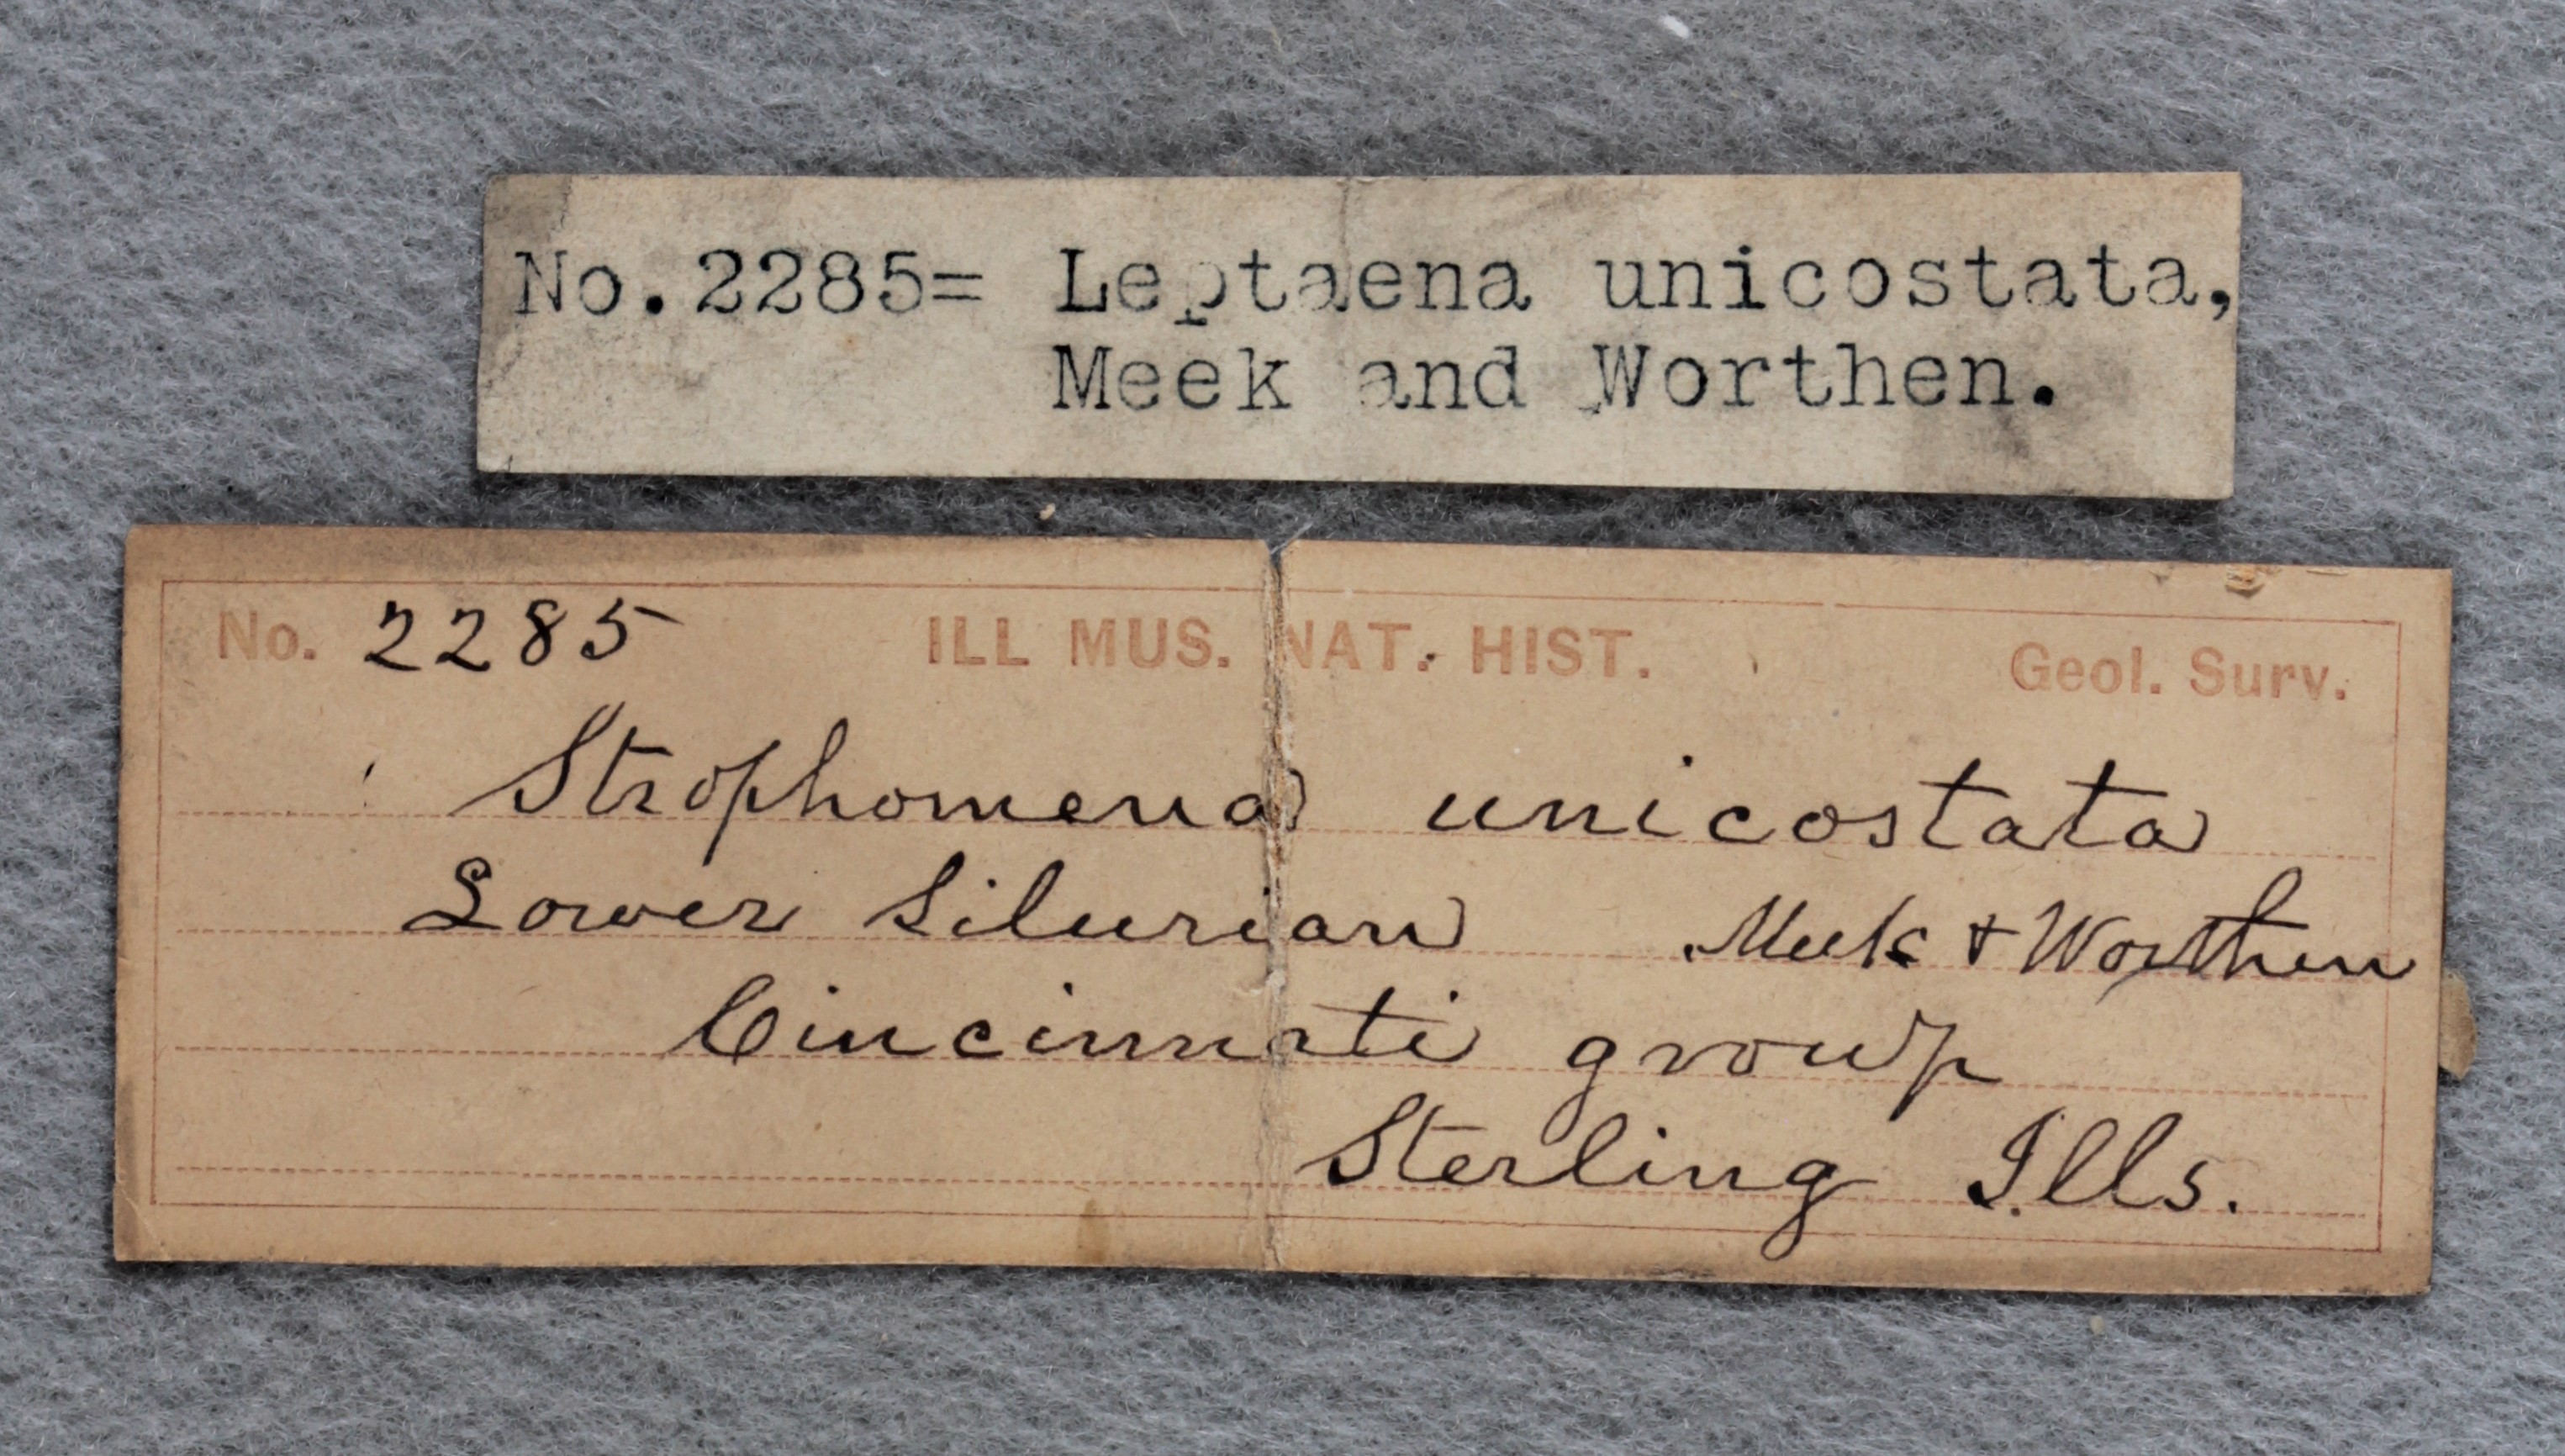 No.2285= Leptaena unicostata,
Meek and Worthen.
No. 2285 ILL MUS. NAT. HIST. Geol. Surv.
Strophomena unicostata
Lower Silurian Meek & Worthen
Cincinnati group
Sterling Ills.